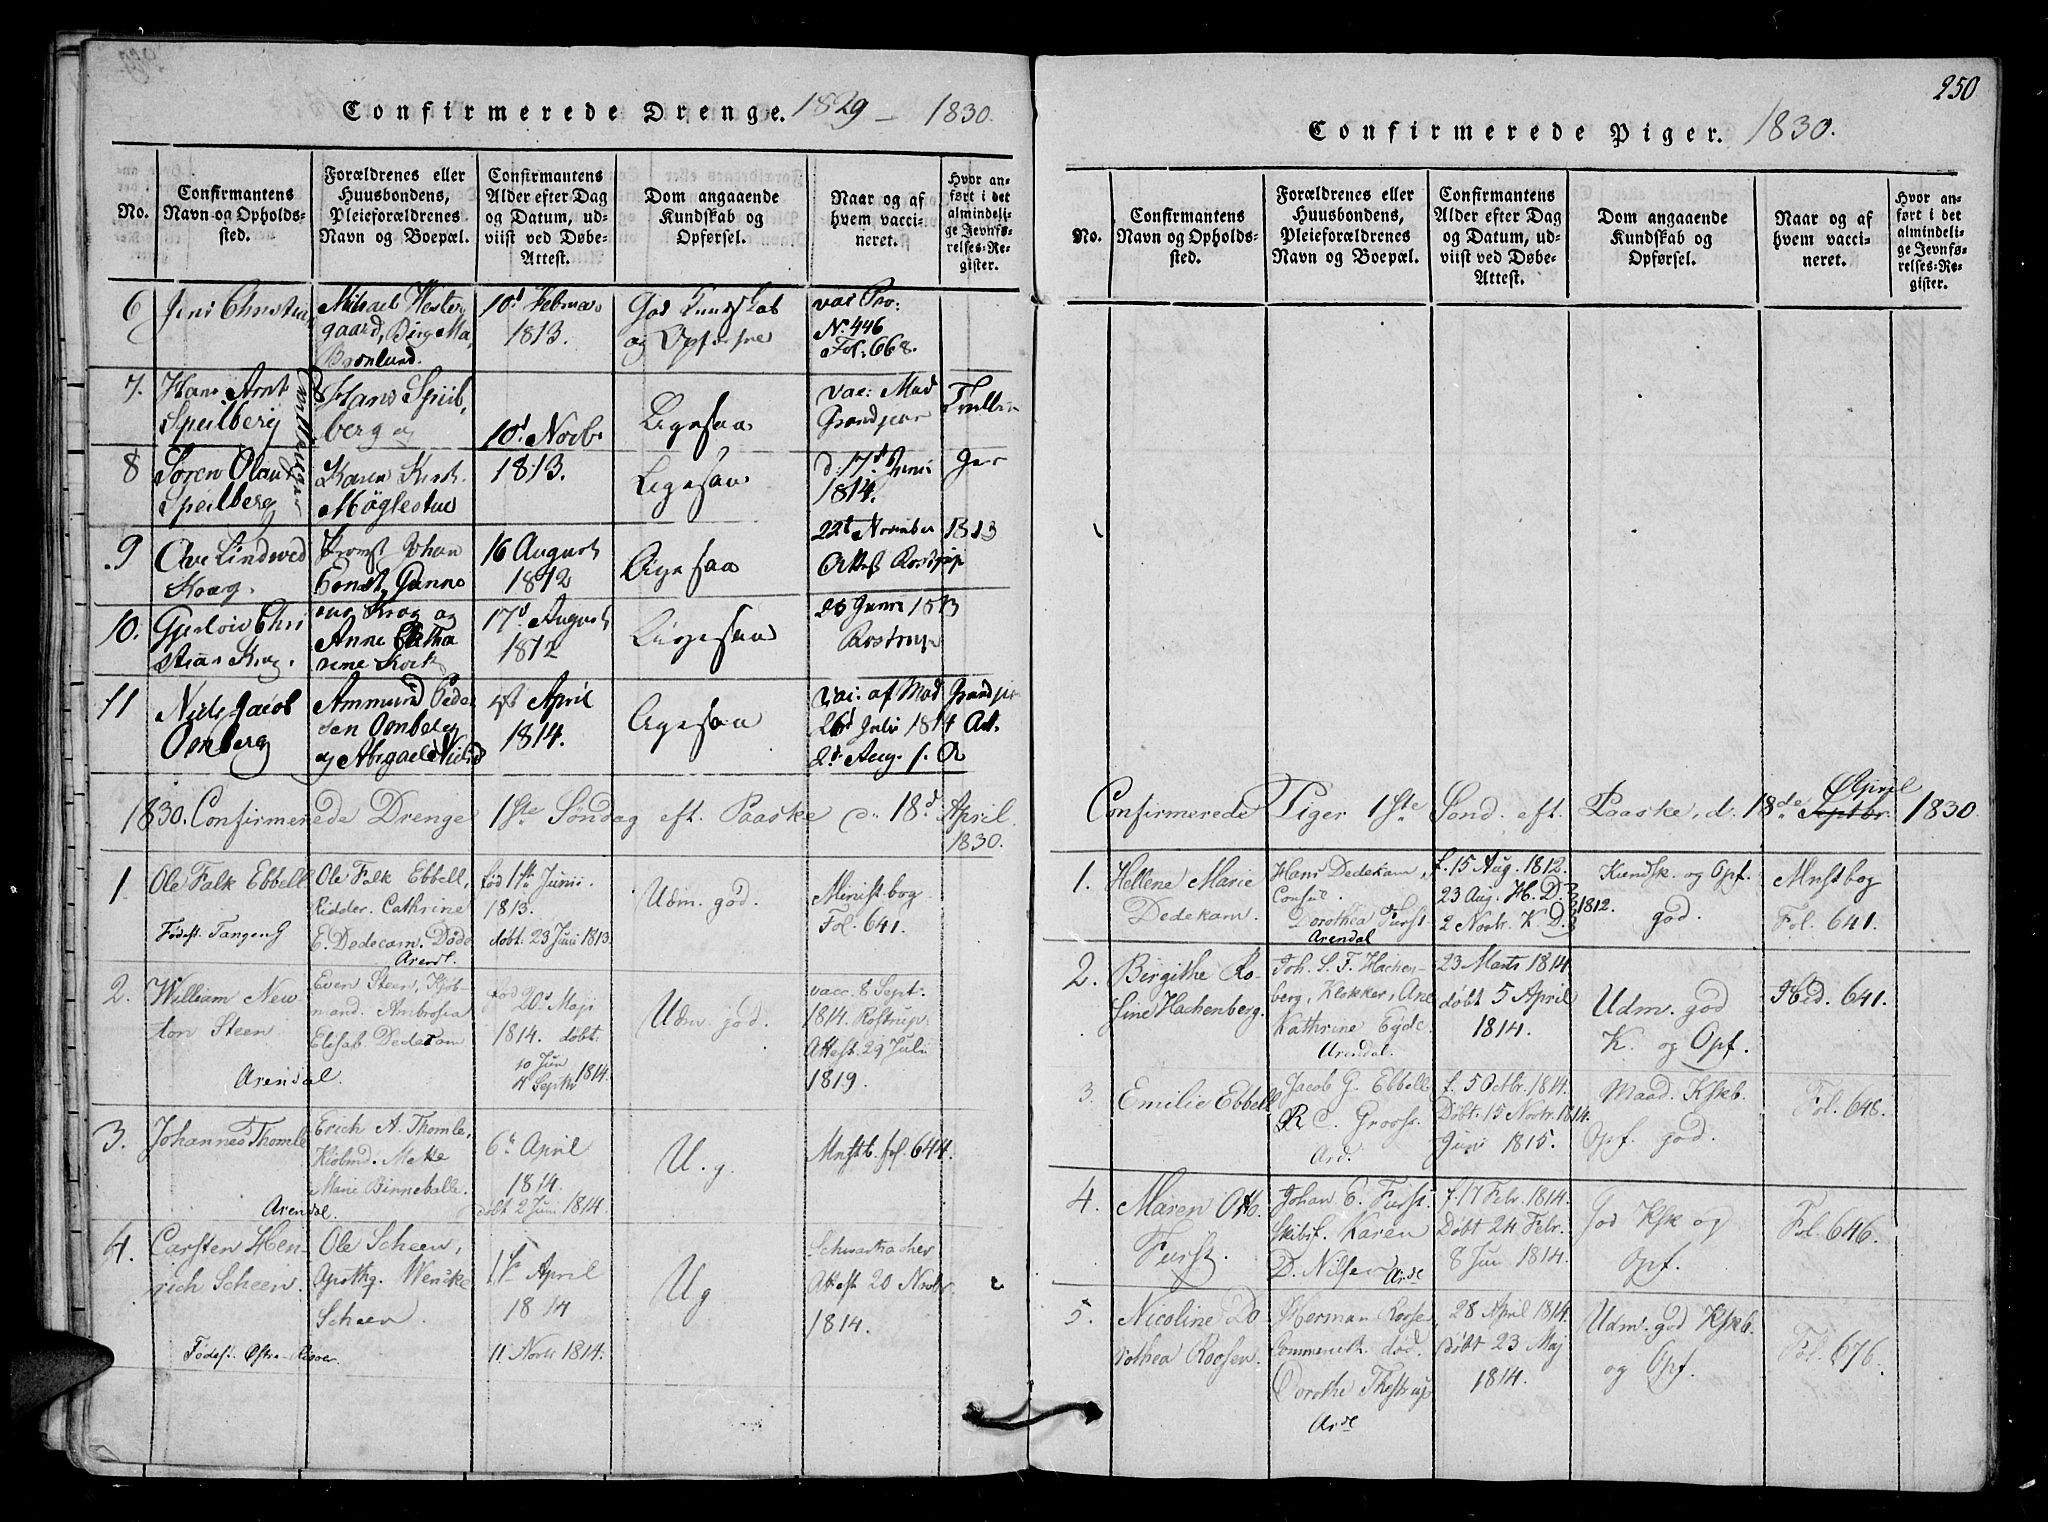 Confirmerede Drenge. 1829 – 1830.
No.
Confirmantens
Navn og Opholds-
sted.
Forældrenes eller
Huusbondens,
Pleieforældrenes
Navn og Boepæl.
Confirmantens
Alder efter Dag
og Datum, ud-
viist ved Døbe-
Attest.
Dom angaaende
Kundskab og
Opførsel.
Naar og af
hvem vacci-
neret.
Hvor an-
ført i det
almindeli-
ge Jevnfø-
relses-Re-
gister.
6
Jens Christian
Michael Wester
gaard,
10d Februar
1813.
God Kundskab
og Opførsel
vac Pro:
No. 446
Fol. 668.
7.
Hans Arnt
Speilberg
Hans Speil,
berg og
10d Novb.
Ligesaa
vac: Mad
Grandjean
8
Søren Olaus
Speilberg
Karen Kirst.
Møglestue
1813.
Ligesaa
d. 17d Juni
1814.
9
Ove Lindwed
Krag.
Provst Johan
Ernst Gunne
16 August
1812
Ligesaa
22d November 1813
Attest Rostrup
10.
Gjerlow Chri
stian Krog.
rus Krog og
Anne Catha
rine Kock
17d August
1812
Ligesaa
26 Junii 1813
Rostrup
11
Niels Jacob
Omberg
Ammund Peder
sen Omberg
og Abigael
April
1814.
Ligesaa
Vac: af Mad Grandjean
26d Julii 1814 At.
2d Aug.
1830. Confirmerede Drenge 1ste Søndag eft. Paaske d. 18d April
1830.
1
Ole Falk Ebbell
Fødest. Tangen G
Ole Falk Ebbell,
Ridder. Cathrine
E. Dedecam. Døde
Arendl.
fød 1ste Junii.
1813.
døbt. 23 Juni 1813.
Udm. god.
Minist. bog
Fol. 641.
2.
William New
ton Steen
Arendal
Even Steen, Kjøb-
mand. Ambrosia
Elisab. Dedekam
fød
20d Maji
1814. døbt.
10 Jun
4 Septbr 1814.
Udm. god.
vacc. 8 Sept.
1814. Rostrup.
Attest. 29 Juli
1819.
3.
Johannes Thomle
Arendal.
Erich A. Thomle,
Kiøbmd. Mette
Marie Binneballe.
6te April
1814.
døbt 2 Juni 1814.
U. g.
Mnstb. fol. 644.
4.
Carsten Hen-
rich Scheen.
Fødest. Østre-Risøer
Ole Scheen,
Apothq. Wencke
Scheen.
1ste April
1814
11. Novb 1814.
Ug
Schwartzacher
Attest 20 Novbr.
1814.
250
Confirmerede Piger. 1830.
No.
Confirmantens
Navn og Opholds-
sted.
Forældrenes eller
Huusbondens,
Pleieforældrenes
Navn og Boepæl.
Confirmantens
Alder efter Dag
og Datum, ud-
viist ved Døbe-
Attest.
Dom angaaende
Kundskab og
Opførsel.
Naar og af
hvem vacci-
neret.
Hvor an-
ført i det
almindeli-
ge Jevnfø-
relses-Re-
gister.
April
Confirmerede Piger 1ste Sønd. eft. Paaske, d. 18de Septbr. 1830
1.
Hellene Marie
Dedekam.
Hans Dedekam,
Consul.
Dorothea Furst
Arendal
f. 15 Aug. 1812.
23 Aug. H. D.
2 Novbr. K. D. 1812.
Kundsk. og Opf.
god.
Mnstbog
Fol. 641.
2.
Birgithe Ro-
sine Hachenberg.
Joh. S. F. Hachen-
berg, Klokker, Ane
Kathrine Eyde.
Arendal.
23 Marts 1814
døbt 5 April
1814.
Udm. god
K. og Opf.
Ibid. 641.
3.
Emilie Ebbell
Jacob G. Ebbell
R C. Grooss.
Ard.
f. 5 Octbr. 1814.
Døbt. 15 Novbr. 1814.
Juni 1815.
Maad. Kskb.
Opf. god.
Fol. 648.
4.
Maren Otto.
Furst.
Johan E. Furst.
Skibsf. Karen
D. Nilsen Ardl
f. 17 Febr. 1814.
Døbt 24 Febr.
8 Jun 1814.
God Ksk og
Opf.
Fol. 646.
5.
Nicoline Do
rothea Roosen.
Herman Roosen,
Commercr. død.
Dorothe Thestrup
Ardl
28 April 1814.
døbt 23 Maj
1814.
Udm. god Kskb.
og Opf.
Fol. 676.